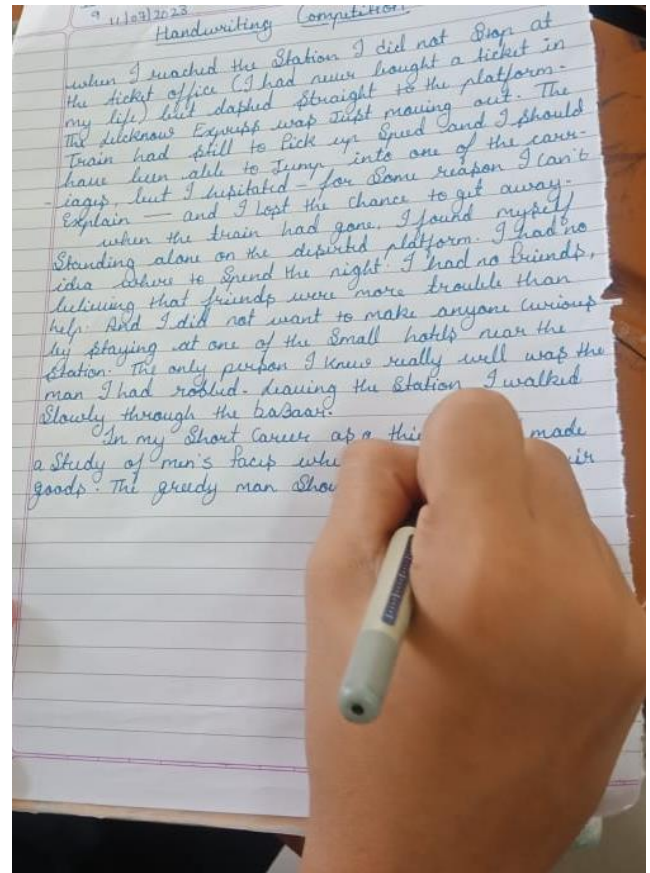 9 11/07/2023
Handwriting Competition
when I reached the Station I did not Stop at
the ticket office (I had never bought a ticket in
my life) but dashed Straight to the platform.
The Lucknow Express was Just moving out. The
Train had still to Pick up Speed and I should
have been able to Jump into one of the carr-
-iages, but I hesitated - for Some reason I can't
Explain — and I lost the chance to get away.
when the train had gone, I found myself
Standing alone on the deserted platform. I had no
idea where to Spend the night. I had no friends,
believing that friends were more trouble than
help. And I did not want to make anyone curious
by staying at one of the Small hotels near the
Station. The only person I knew really well was the
man I had robbed. Leaving the Station I walked
Slowly through the baBaar.
In my Short Career as a thie made
a Study of men's faces whe eir
goods. The greedy man Show